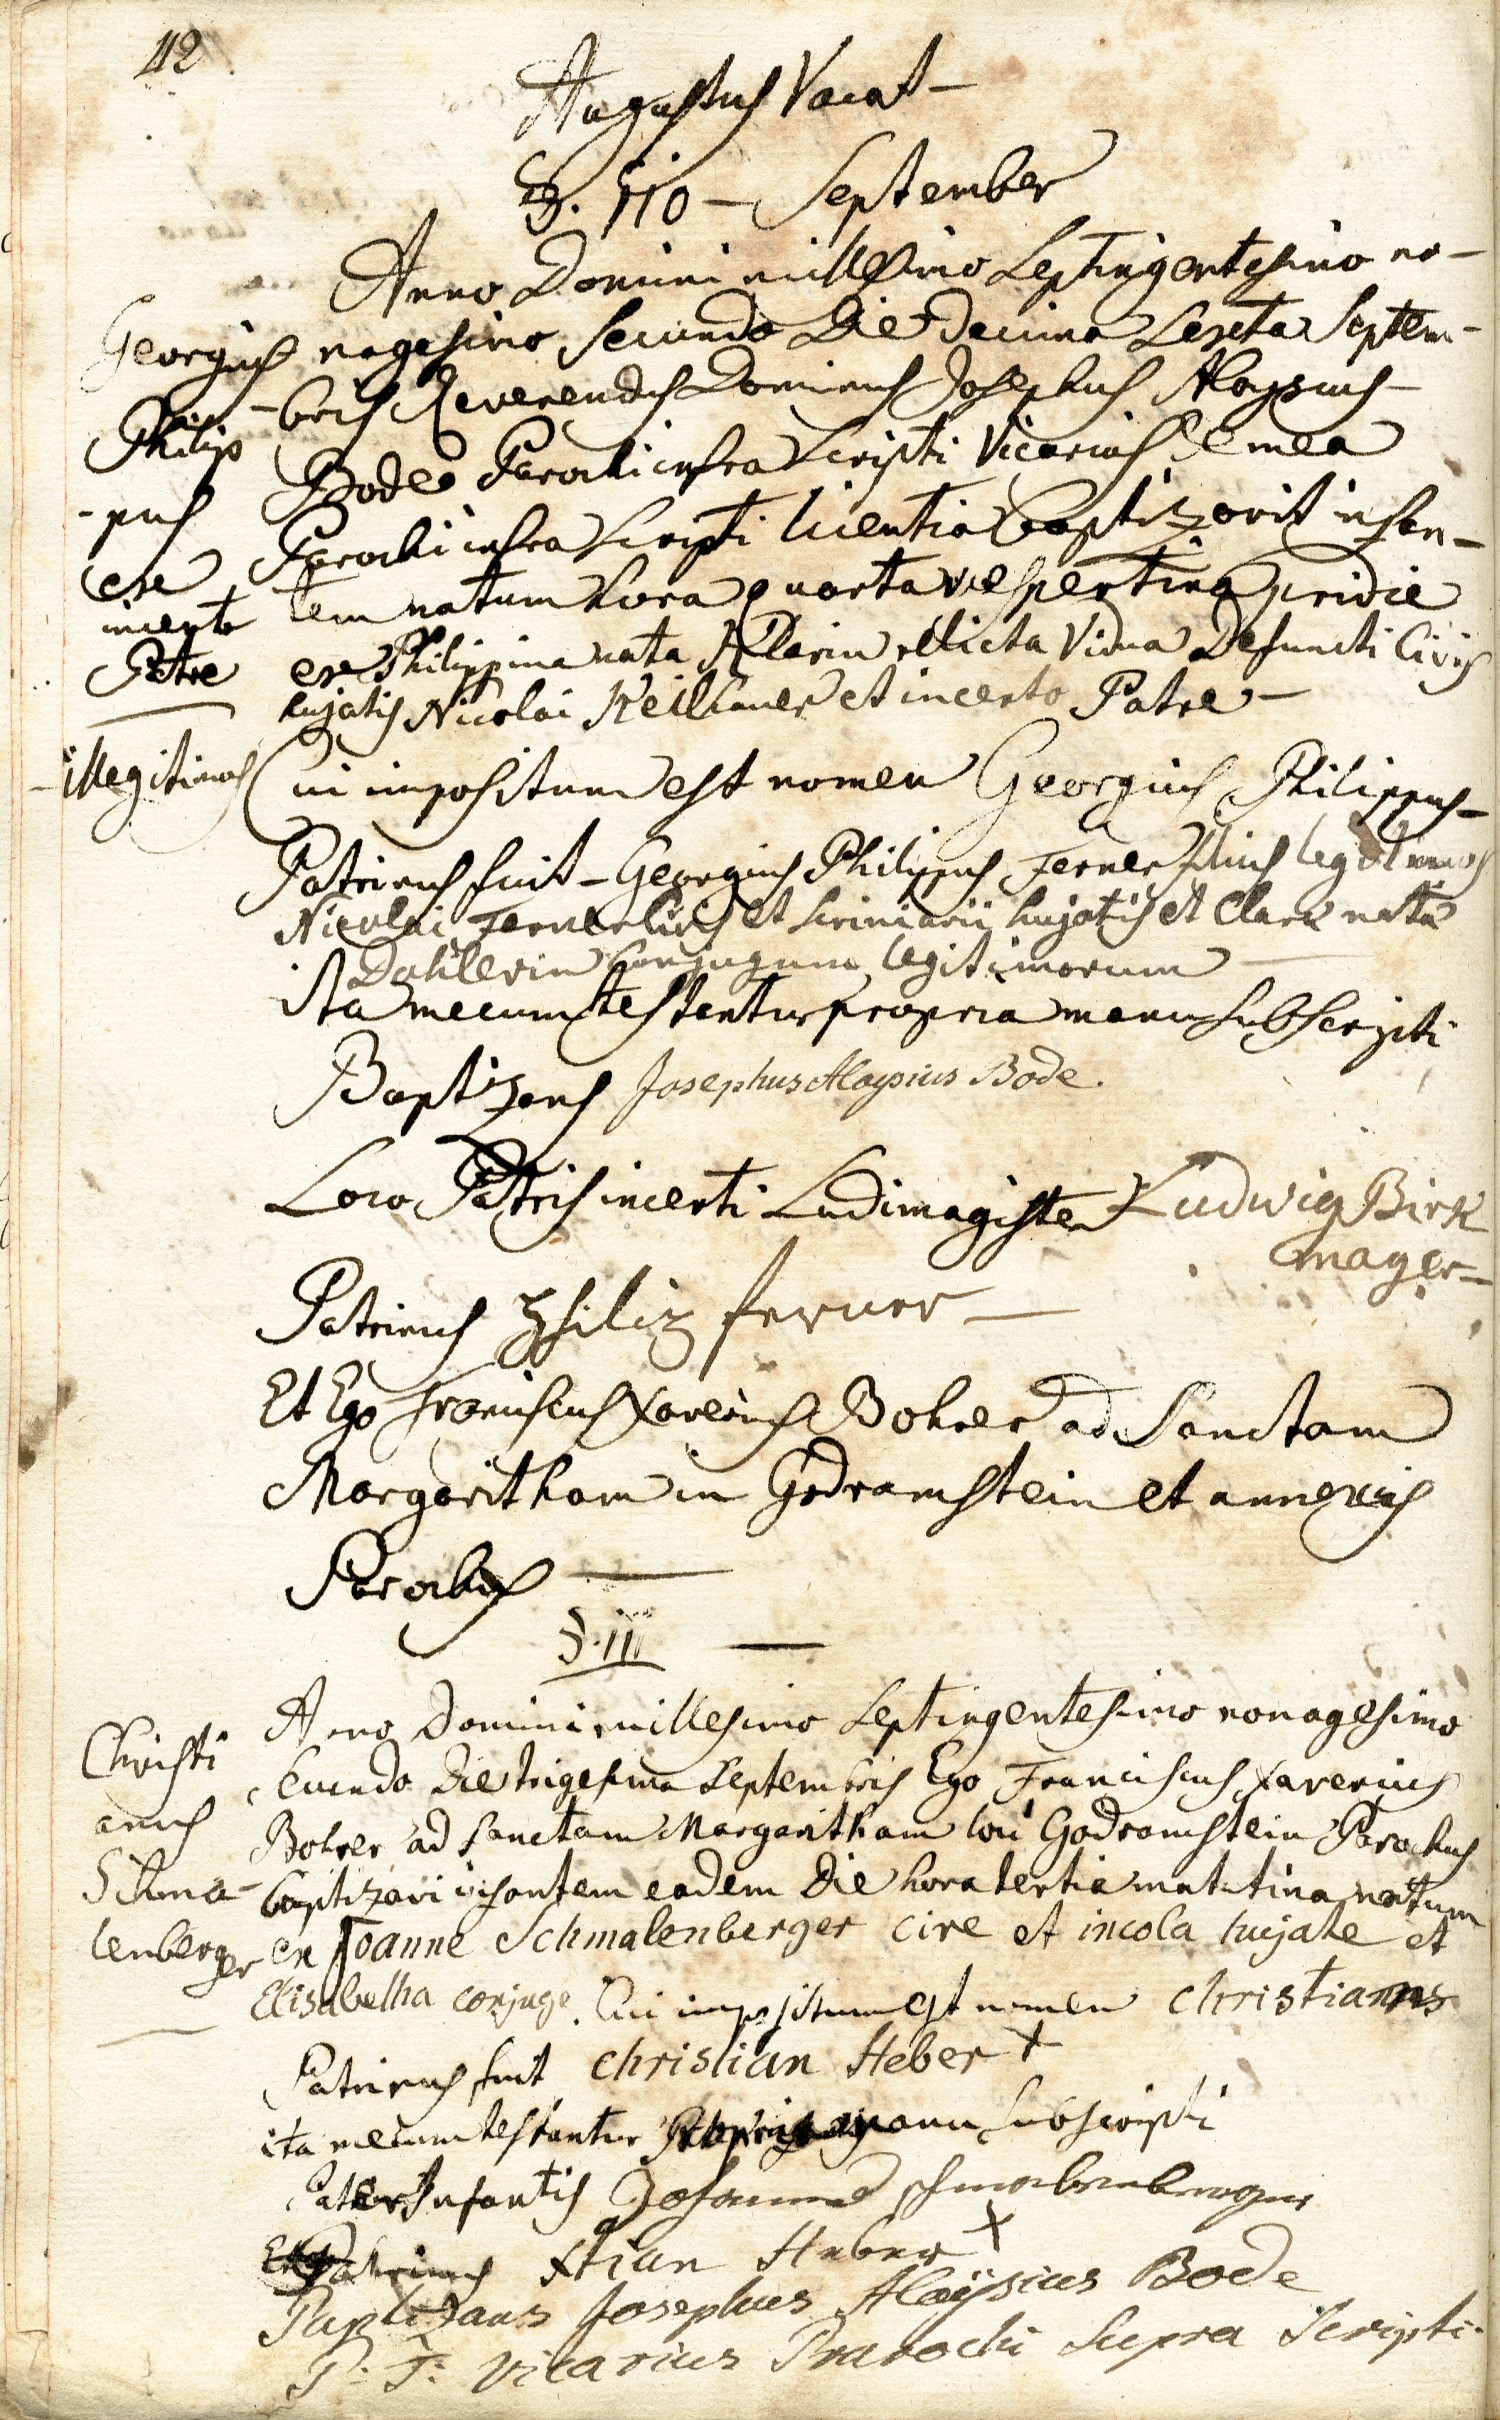 112
Augustus Vacat –
§. 110 – September
Anno Domini millesimo Septingentesimo no-
Georgius
nagesimo Secundo Die decima Sexta Septem-
-bris Reverendus Dominus Josephus Aloysius
Philip
Bode Parochi infra Scripti Vicarius de mea
-pus
Parochi infra Scripti licentia baptizavit infan-
ex
tem natum hora quarta vespertina pridie
incerto
ex Philippina nata relicta Vidua Defuncti Civis
Patre
hujatis Nicolai et incerto Patre –
-illegitimus
Cui impositum est nomen Georgius Philippus –
Patrinus fuit – Georgius Philippus Ferner filius legitimus
Nicolai Ferner Civis et scriniarii hujatis et Clara nata
Dahlerin Conjugum legitimorum –
ita mecum testantur propria manu Subscripti
Baptizans Josephus Aloysius Bode.
Loco Patris incerti Ludimagister Ludwig Birk
mayer –
Patrinus Philip ferner –
Et Ego Franciscus Xaverius Bohrer ad Sanctam
Margaritham in Godramstein et annexis
Parochus –
§. 111 –
Anno Domini millesimo Septingentesimo nonagesimo
Christi
Secundo Die trigesima Septembris Ego Franciscus Xaverius
anus
Bohrer ad Sanctam Margaritham loci Godramstein Parochus
Schma-
baptizavi infantem eadem Die hora tertia matutina natum
lenberger
ex Joanne Schmalenberger cive et incola hujate et
Elisabetha conjuge. Cui impositum est nomen Christianus
Patrinus fuit Christian Heber +
ita mecum testantur manu Subscripti
Pater Infantis Johannes schmalenberger
Patrinus Xtian Heber +
Baptizans Josephus Aloÿsius Bode
P: T: Vicarius Parochi Supra Scripti.